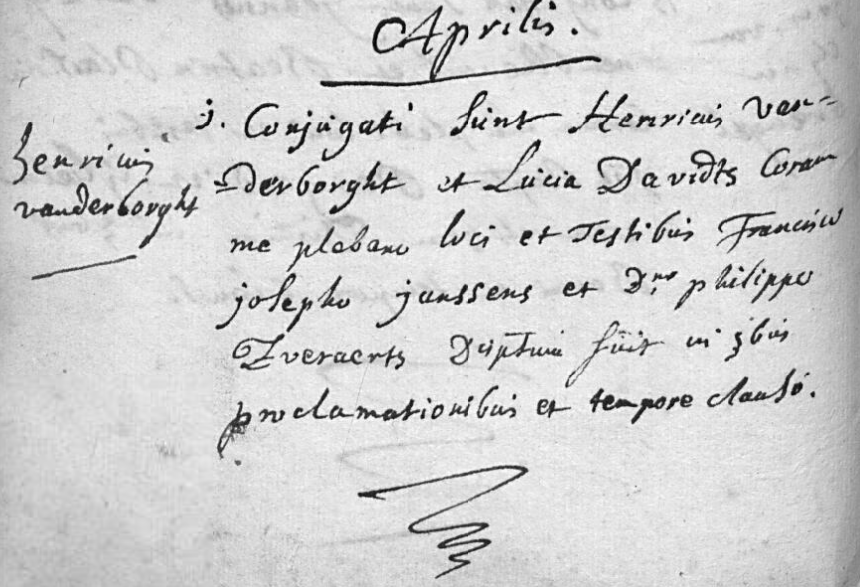 Aprilis.
henricus
vanderborght
j. Conjugati sunt Henricus van=
=derborght et Lucia Davidts Coram
me plebano loci et Testibus Francisco
josepho janssens et D.no philippo
Everaerts Disptum fuit in 3bus
proclamationibus et tempore clauso.